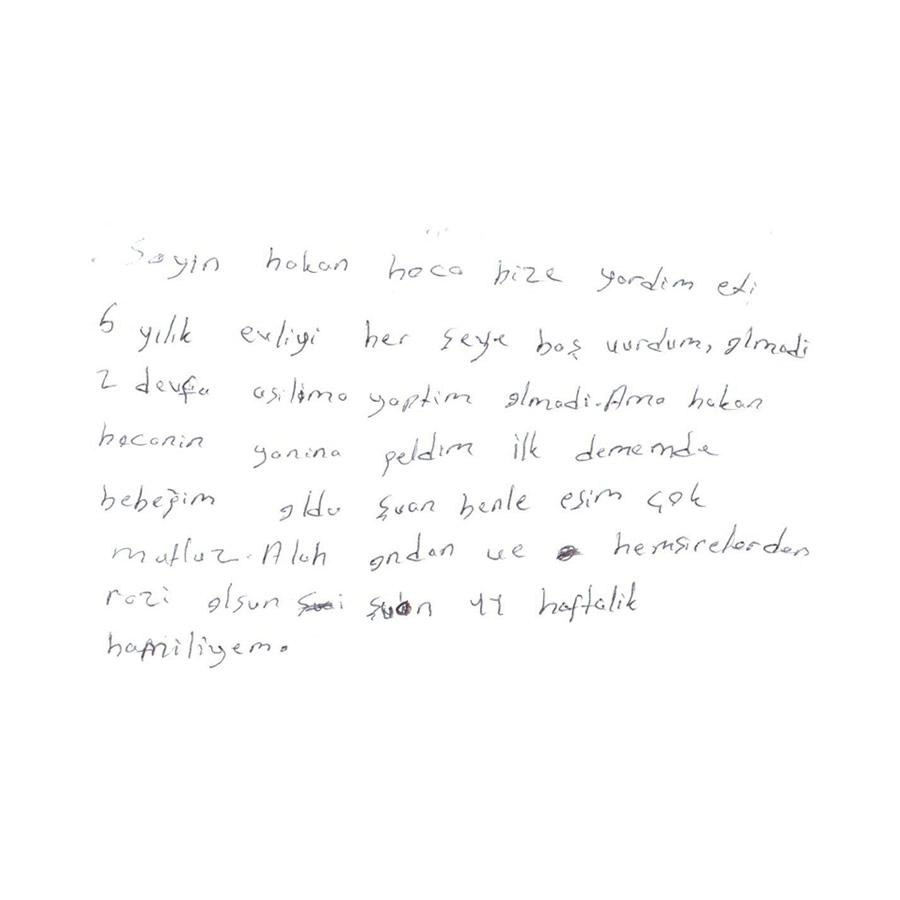 Sayin hakan hoca bize yardim eti
6 yılık evliyi her şeye baş vurdum, olmadi
2 devfa asilama yaptim olmadi. Ama hakan
hocanin yanina geldim ilk dememde
bebeğim oldu şuan benle eşim çok
mutluz. Alah ondan ve hemşirelerden
razi olsun şuan 11 haftalik
hamiliyem.